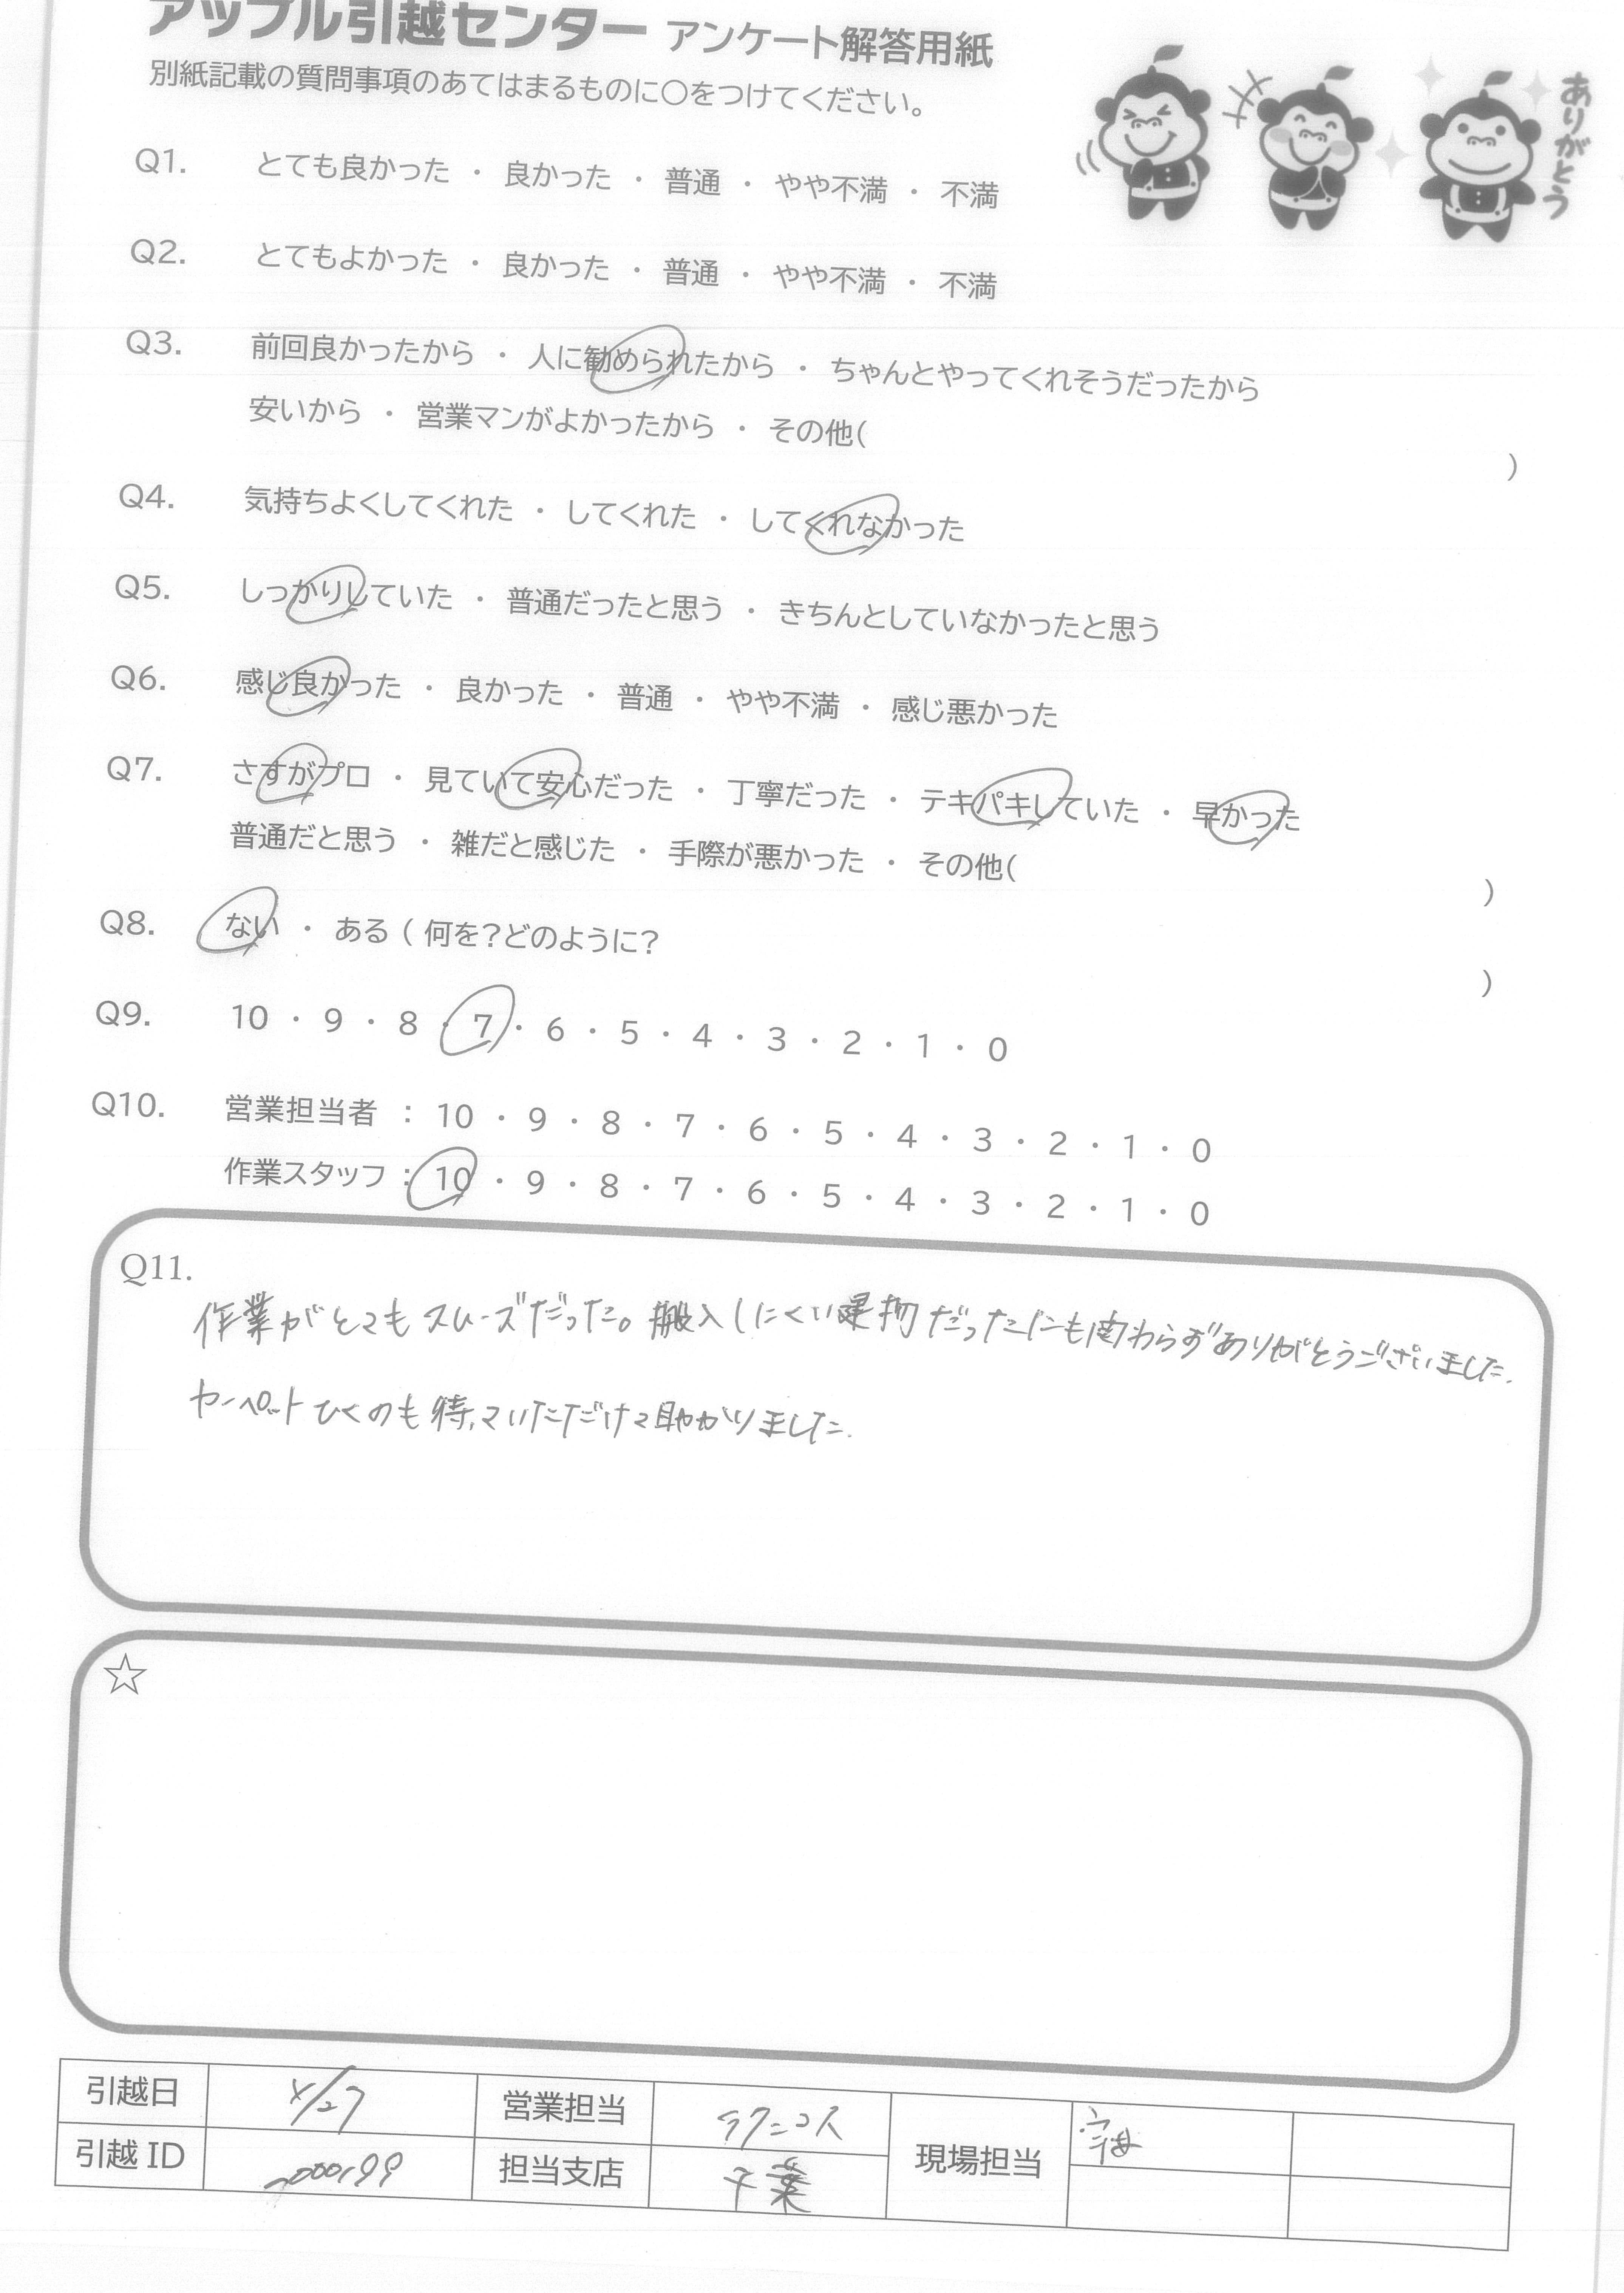 アップル引越センター アンケート解答用紙
別紙記載の質問事項のあてはまるものに○をつけてください。
ありがとう
Q1. とても良かった ・ 良かった ・ 普通 ・ やや不満 ・ 不満
Q2. とてもよかった ・ 良かった ・ 普通 ・ やや不満 ・ 不満
Q3. 前回良かったから ・ 人に勧められたから ・ ちゃんとやってくれそうだったから
安いから ・ 営業マンがよかったから ・ その他( )
Q4. 気持ちよくしてくれた ・ してくれた ・ してくれなかった
Q5. しっかりしていた ・ 普通だったと思う ・ きちんとしていなかったと思う
Q6. 感じ良かった ・ 良かった ・ 普通 ・ やや不満 ・ 感じ悪かった
Q7. さすがプロ ・ 見ていて安心だった ・ 丁寧だった ・ テキパキしていた ・ 早かった
普通だと思う ・ 雑だと感じた ・ 手際が悪かった ・ その他( )
Q8. ない ・ ある ( 何を?どのように? )
Q9. 10 ・ 9 ・ 8 ・ 7 ・ 6 ・ 5 ・ 4 ・ 3 ・ 2 ・ 1 ・ 0
Q10. 営業担当者 : 10 ・ 9 ・ 8 ・ 7 ・ 6 ・ 5 ・ 4 ・ 3 ・ 2 ・ 1 ・ 0
作業スタッフ : 10 ・ 9 ・ 8 ・ 7 ・ 6 ・ 5 ・ 4 ・ 3 ・ 2 ・ 1 ・ 0
Q11.
作業がとてもスムーズだった。搬入しにくい建物だったにも関わらずありがとうございました.
カーペットひくのも待っていただけて助かりました.
☆
引越日 /27 営業担当 現場担当
引越 ID 担当支店 千葉